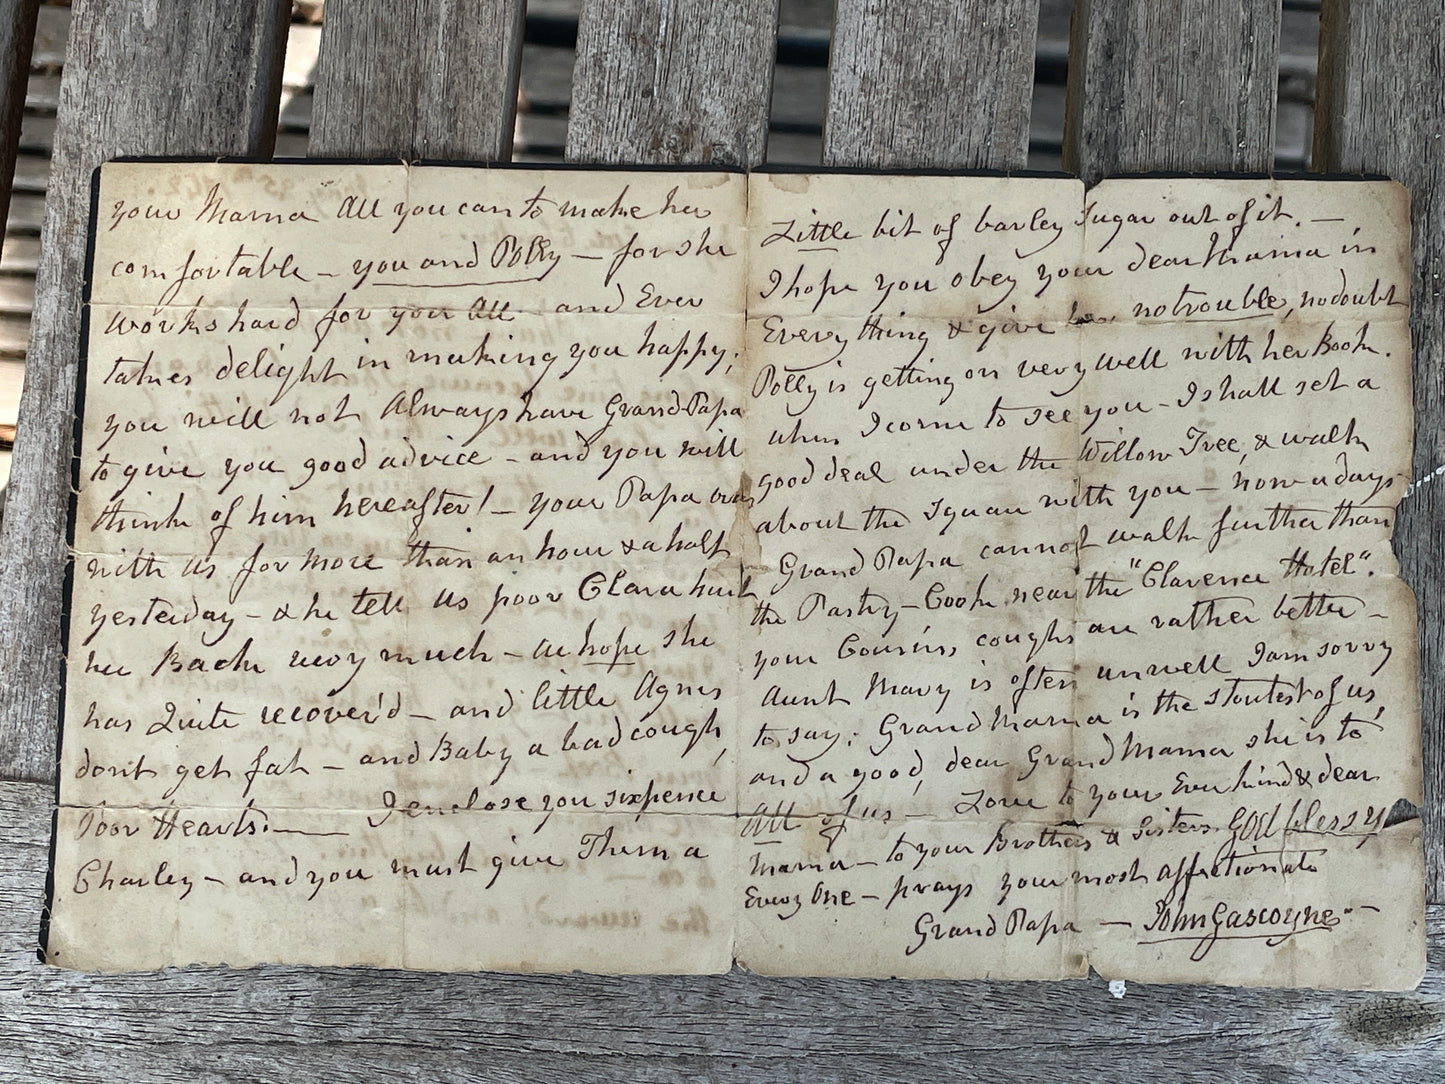 your Mama All you can to make her
comfortable – you and Polly – for she
works hard for you All – and Ever
takes delight in making you happy;
you will not Always have Grand-Papa
to give you good advice – and you will
think of him hereafter! – your Papa was
with us for more than an hour & a half
yesterday – & he tell us poor Clara hurt
her Back very much – we hope she
has Quite recover'd – and little Agnes
don't get fat – and Baby a bad cough,
Poor Hearts. —— I enclose you sixpence
Charley – and you must give Them a
Little bit of barley Sugar out of it. –
I hope you obey your dear Mama in
Every thing & give her no trouble, no doubt
Polly is getting on very well with her Book.
when I come to see you – I shall set a
good deal under the Willow Tree, & walk
about the Square with you – now a days
Grand Papa cannot walk further than
the Pastry-Cook near the "Clarence Hotel".
your Cousins coughs are rather better –
Aunt Mary is often unwell I am sorry
to say: Grand Mama is the stoutest of us,
and a good, dear Grand Mama she is to
All of us – Love to your Ever kind & dear
Mama – to your Brothers & Sisters. GOd bless y
Every One – prays your most affectionate
Grand Papa – John Gascoyne. –